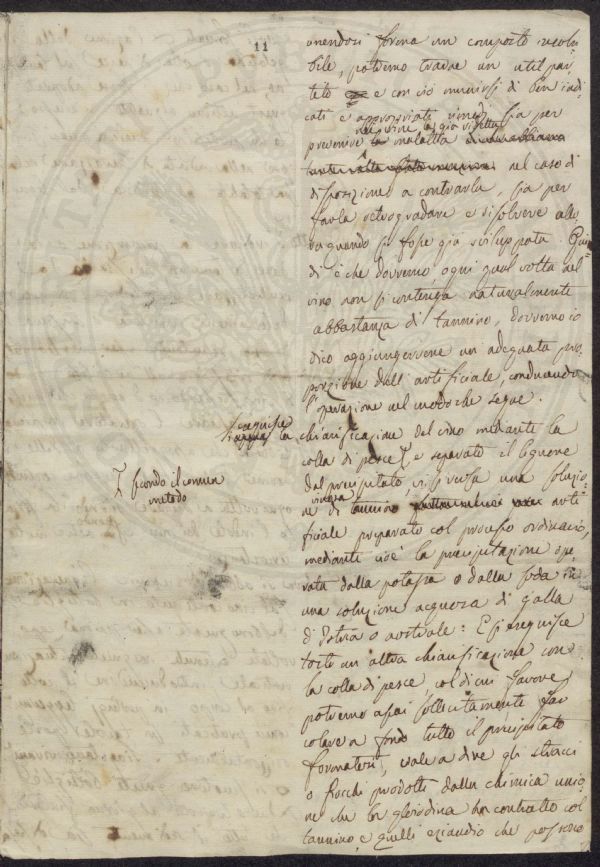 11
unendosi forma un composto insolu-
bile, potremo trarne un util par-
tito e con ciò munirsi di ben indi-
cati e appropriati rimedj sia per
prevenire la malattia
nel caso di
disposizione a contrarla, sia per
farla retrogradare e risolvere allo-
ra quando si fosse già sviluppata. Quin-
di è che dovremo ogni qual volta nel
vino non si contenga naturalmente
abbastanza di tannino, dovremo io
dico aggiungervene un adeguata pro-
porzione dell' artificiale, conducendo
l'operazione nel modo che segue.
Eseguise la chiarificazione del vino mediante la
colla di pesce e separato il liquore
secondo il comun
metodo
dal precipitato, vi si versa una soluzio-
ne vinosa di tannino arti-
ficiale preparato col processo ordinario,
mediante cioè la precipitazione ope-
rata dalla potassa o dalla soda in
una soluzione acquosa di galla
d'Istria o nostrale: Esi eseguisce
tosto un altra chiarificazione con
la colla di pesce, col di cui favore
potremo assai sollecitamente far
colare a fondo tutto il precipitato
formatosi, vale a dire gli stracci
o fiocchi prodotti dalla chimica unio-
ne che la gloiodina ha contratto col
tannino, e quelli eziandio che possono